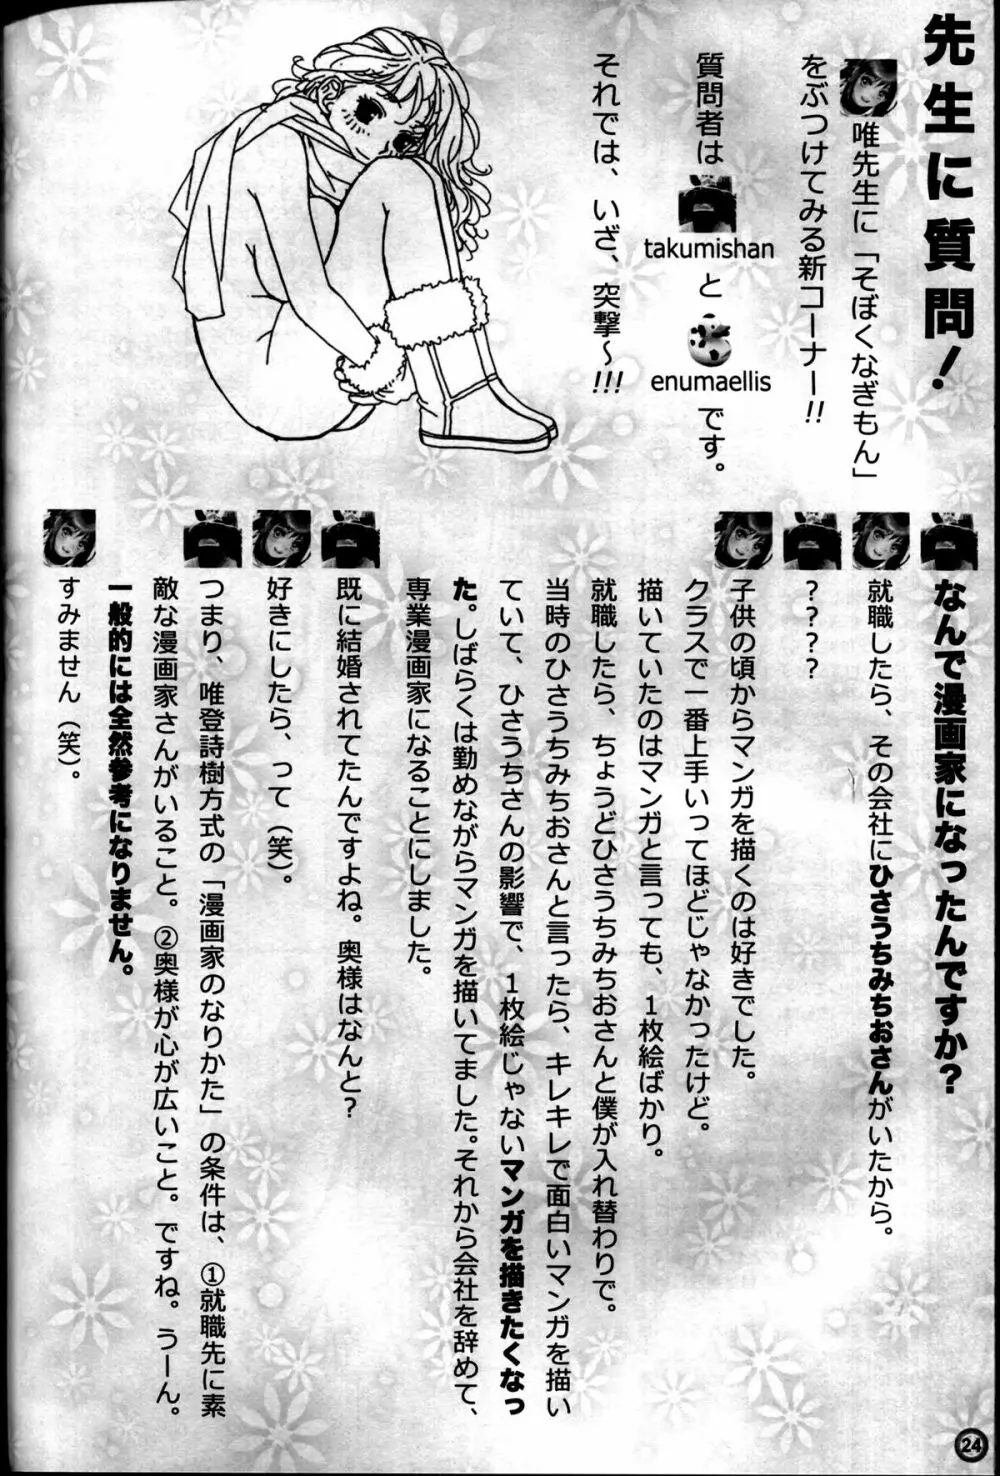 先生に質問！
唯先生に「そぼくなぎもん」
をぶつけてみる新コーナー!!
質問者は
takumishan
と
enumaellis
です。
それでは、いざ、突撃～!!!
なんで漫画家になったんですか？
就職したら、その会社にひさうちみちおさんがいたから。
？？？？
子供の頃からマンガを描くのは好きでした。
クラスで一番上手いってほどじゃなかったけど。
描いていたのはマンガと言っても、１枚絵ばかり。
就職したら、ちょうどひさうちみちおさんと僕が入れ替わりで。
当時のひさうちみちおさんと言ったら、キレキレで面白いマンガを描い
ていて、ひさうちさんの影響で、１枚絵じゃないマンガを描きたくなっ
た。しばらくは勤めながらマンガを描いてました。それから会社を辞めて、
専業漫画家になることにしました。
既に結婚されてたんですよね。奥様はなんと？
好きにしたら、って（笑）。
つまり、唯登詩樹方式の「漫画家のなりかた」の条件は、①就職先に素
敵な漫画家さんがいること。②奥様が心が広いこと。ですね。うーん。
一般的には全然参考になりません。
すみません（笑）。
24